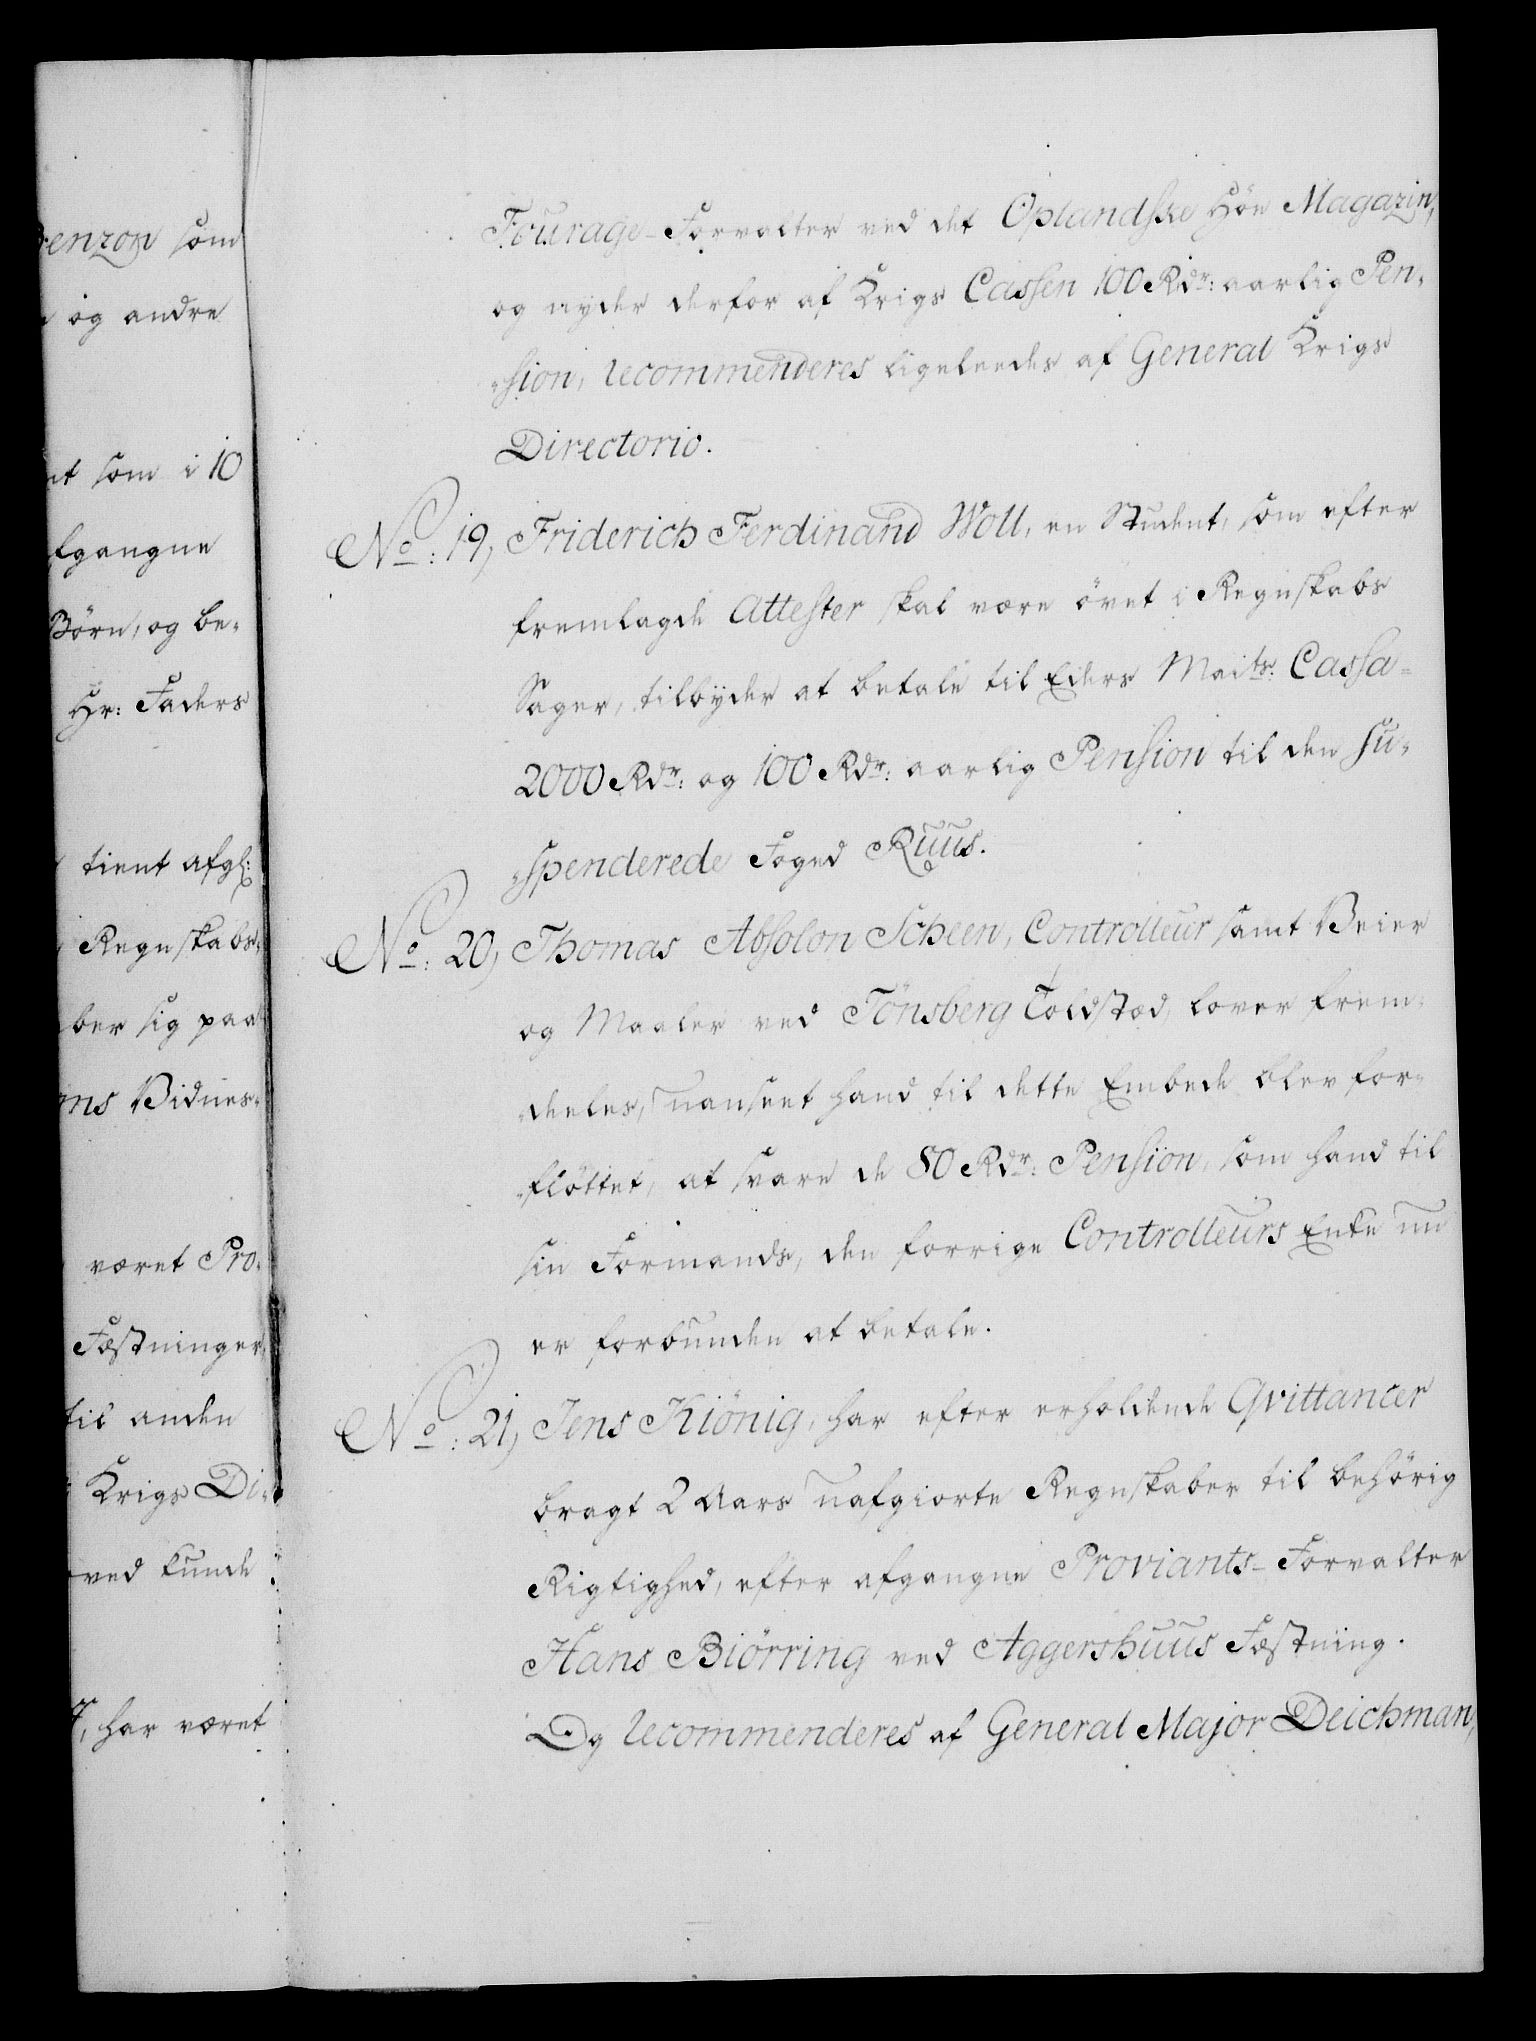 renzon som
og andre
nt som i 10
fgangne
Börn, og be-
Hr: Faders
tient afgl:
Regnskabs-
ber sig paa
ms Vidnes-
været Pro-
Fæstninger
til anden
Krigs Di-
ved kunde
har været
Fourage-Forvalter ved det Oplandske Höe Magazin,
og nyder derfor af Krigs Cassen 100 Rdr: aarlig Pen-
-sion, recommenderes ligeleedes af General Krigs
Directorio.
No: 19, Friderich Ferdinand Woll, en Student, som efter
fremlagde Attester skal være övet i Regnskabs
Sager, tilbyder at betale til Eders Maits: Cassa-
2000 Rdr: og 100 Rdr: aarlig Pension til den su-
-spenderede Foged Ruus.
No: 20, Thomas Absolon Scheen, Controlleur samt Veier
og Maaler ved Tönsberg Toldstæd, lover frem-
-deeles, uanseet hand til dette Embede blev for-
-flöttet, at svare de 80 Rdr: Pension, som hand til
sin Formands, den forrige Controlleurs Enke nu
er forbunden at betale.
No: 21, Jens Kiönig, har efter erholdende Qvittancer
bragt 2 Aars uafgiorte Regnskaber til behörig
Rigtighed, efter afgangne Proviants-Forvalter
Hans Biörring ved Aggershuus Fæstning.
Og recommenderes af General Major Deichman,